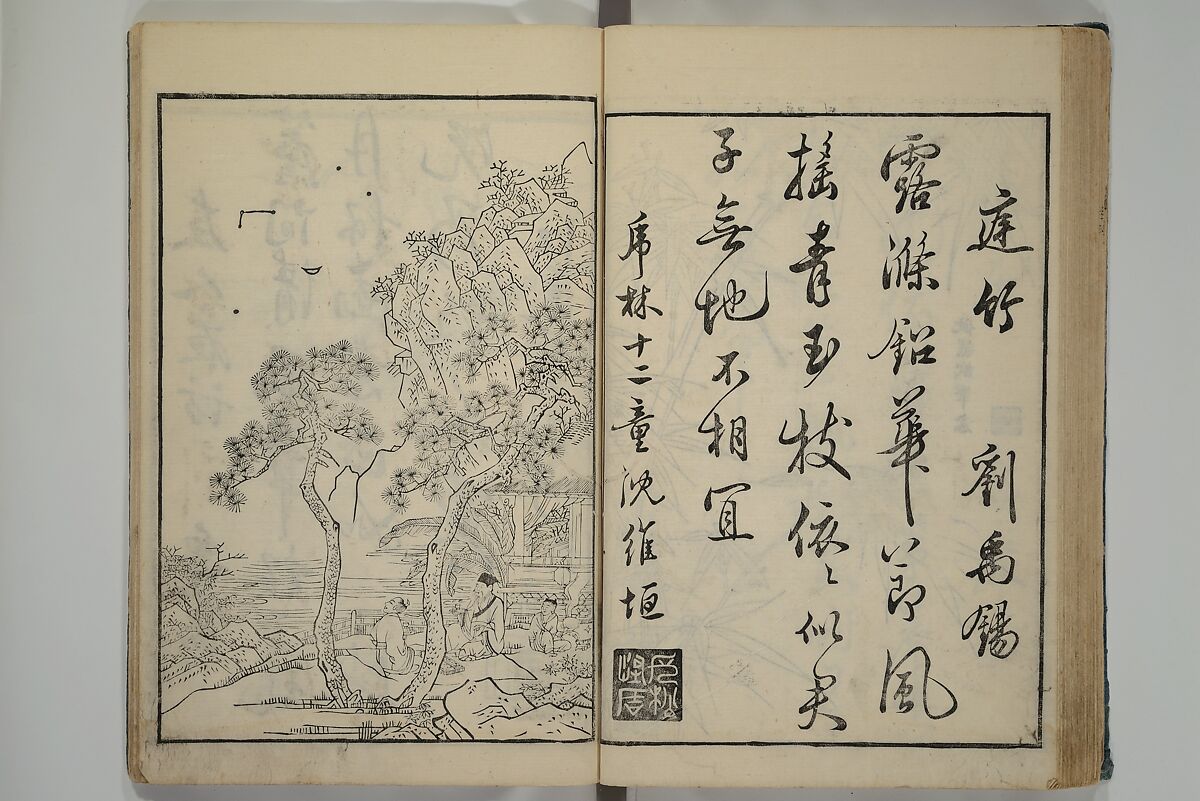 庭竹 劉禹錫
露滌鉛華節風
搖青玉枝依〻似君
子無地不相宜
虎林十二童沈維垣